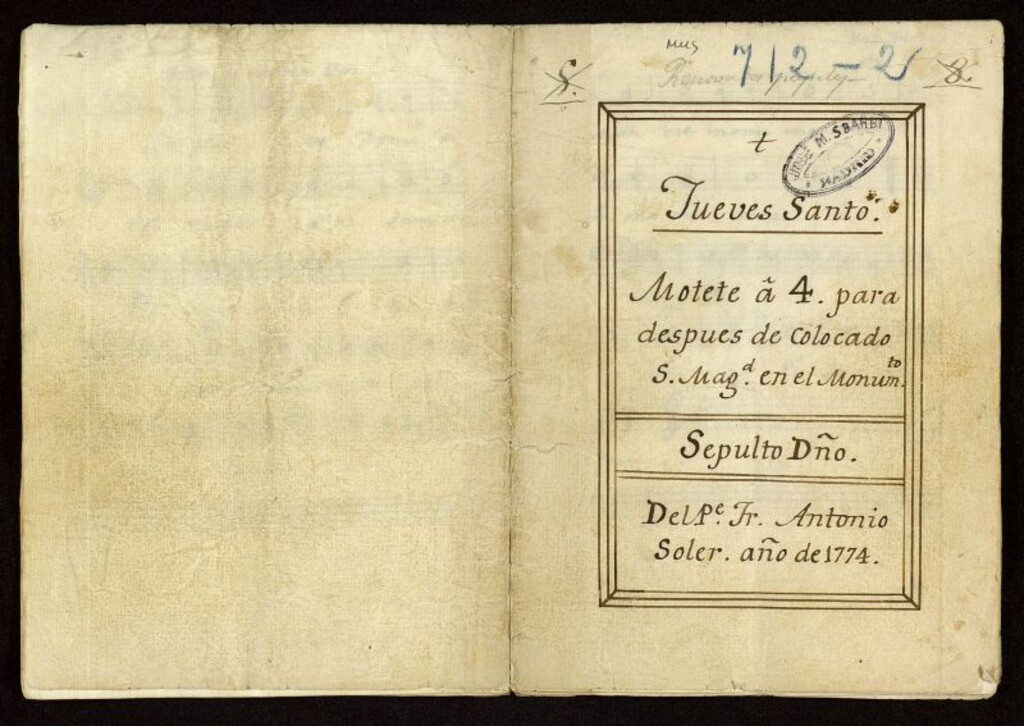 Mus 712-2
8. 8.
✝
JOSE M. SBARBI
MADRID
Jueves Santo.
Motete â 4. para
despues de Colocado
S. Mag.d en el Monum.to
Sepulto Dño.
Del P.e Fr. Antonio
Soler. año de 1774.